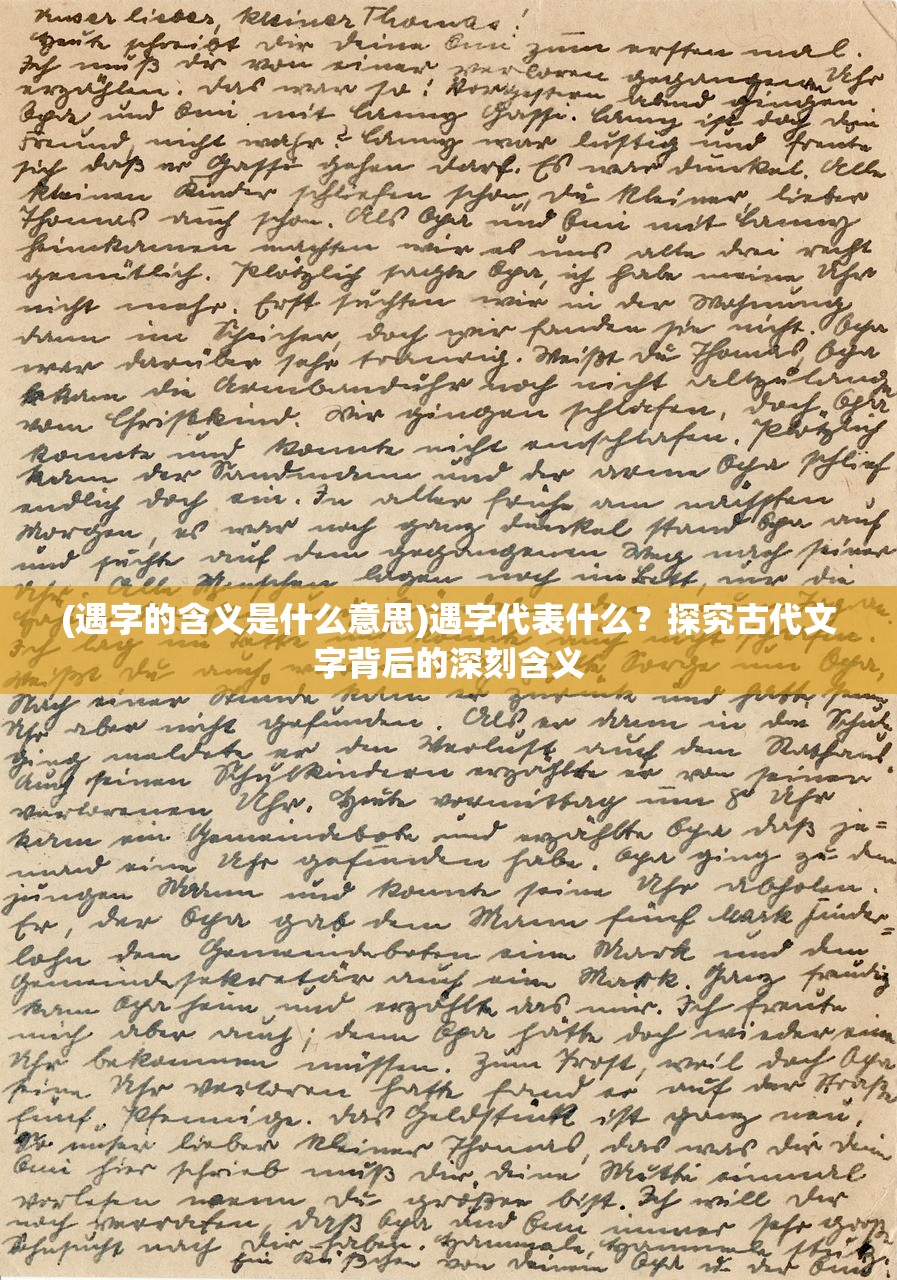 Unser lieber, kleiner Thomas!
Heute schreibt Dir Deine Omi zum ersten mal.
Ich muß Dir von einer verloren gegangenen Uhr
erzählen. Das war so: Vorgestern abend gingen
Opa und Omi mit Lanny Gassi. Lanny ist doch dein
Freund, nicht wahr? Lanny war lustig und freute
sich daß er Gassi gehen darf. Es war dunkel. Alle
kleinen Kinder schliefen schon, Du kleiner, lieber
Thomas auch schon. Als Opa und Omi mit Lanny
heimkamen machten wir es uns alle drei recht
gemütlich. Plötzlich sagte Opa, ich habe meine Uhr
nicht mehr. Erst suchten wir in der Wohnung
dann im, doch wir fanden sie nicht. Opa
war darüber sehr traurig. Weißt Du Thomas, Opa
bekam die Armbanduhr noch nicht allzulange
vom Christkind. Wir gingen schlafen, doch Opa
konnte und konnte nicht einschlafen. Plötzlich
kam der Sandmann und der arme Opa schlief
endlich doch ein. In aller frühe am nächsten
Morgen, es war noch ganz dunkel stand Opa auf
und suchte auf dem gegangenen Weg nach seiner
Uhr. Alle Menschen lagen noch im Bett, nur die
(遇字的含义是什么意思)遇字代表什么？探究古代文
字背后的深刻含义
Ich lag im
Weißt Du auch, Sorge um Opa.
Nach einer Stunde kam er zurück und hatte seine
Uhr aber nicht gefunden. Als er dann in die Schule
ging meldete er den Verlust auf dem Rathaus.
Auch seinen Schulkindern erzählte er von seiner
verlorenen Uhr. Heute vormittag um 8° Uhr
kam ein Gemeindebote und erzählte Opa daß je=
mand eine Uhr gefunden habe. Opa ging zu dem
jungen Mann und konnte seine Uhr abholen.
Er, der Opa gab dem Mann fünf Mark Finder=
lohn dem Gemeindeboten eine Mark und dem
Gemeindesekretär auch eine Mark. Ganz freudig
kam Opa heim und erzählte das mir. Ich freute
mich aber auch; denn Opa hätte doch wieder eine
Uhr bekommen müssen. Zum Trost, weil doch Opa
seine Uhr verloren hatte fand er auf der Straße
fünf Pfennige. Das Geldstück ist ganz neu.
So unser lieber kleiner Thomas, das was Dir Deine
Omi hier schrieb muß Dir Deine Mutti einmal
vorlesen wenn Du größer bist. Ich will Dir
noch verraten, daß Opa und Omi immer sehr große
Sehnsucht nach Dir haben.
Ein Küßchen von Deinem Opa u. der Omi